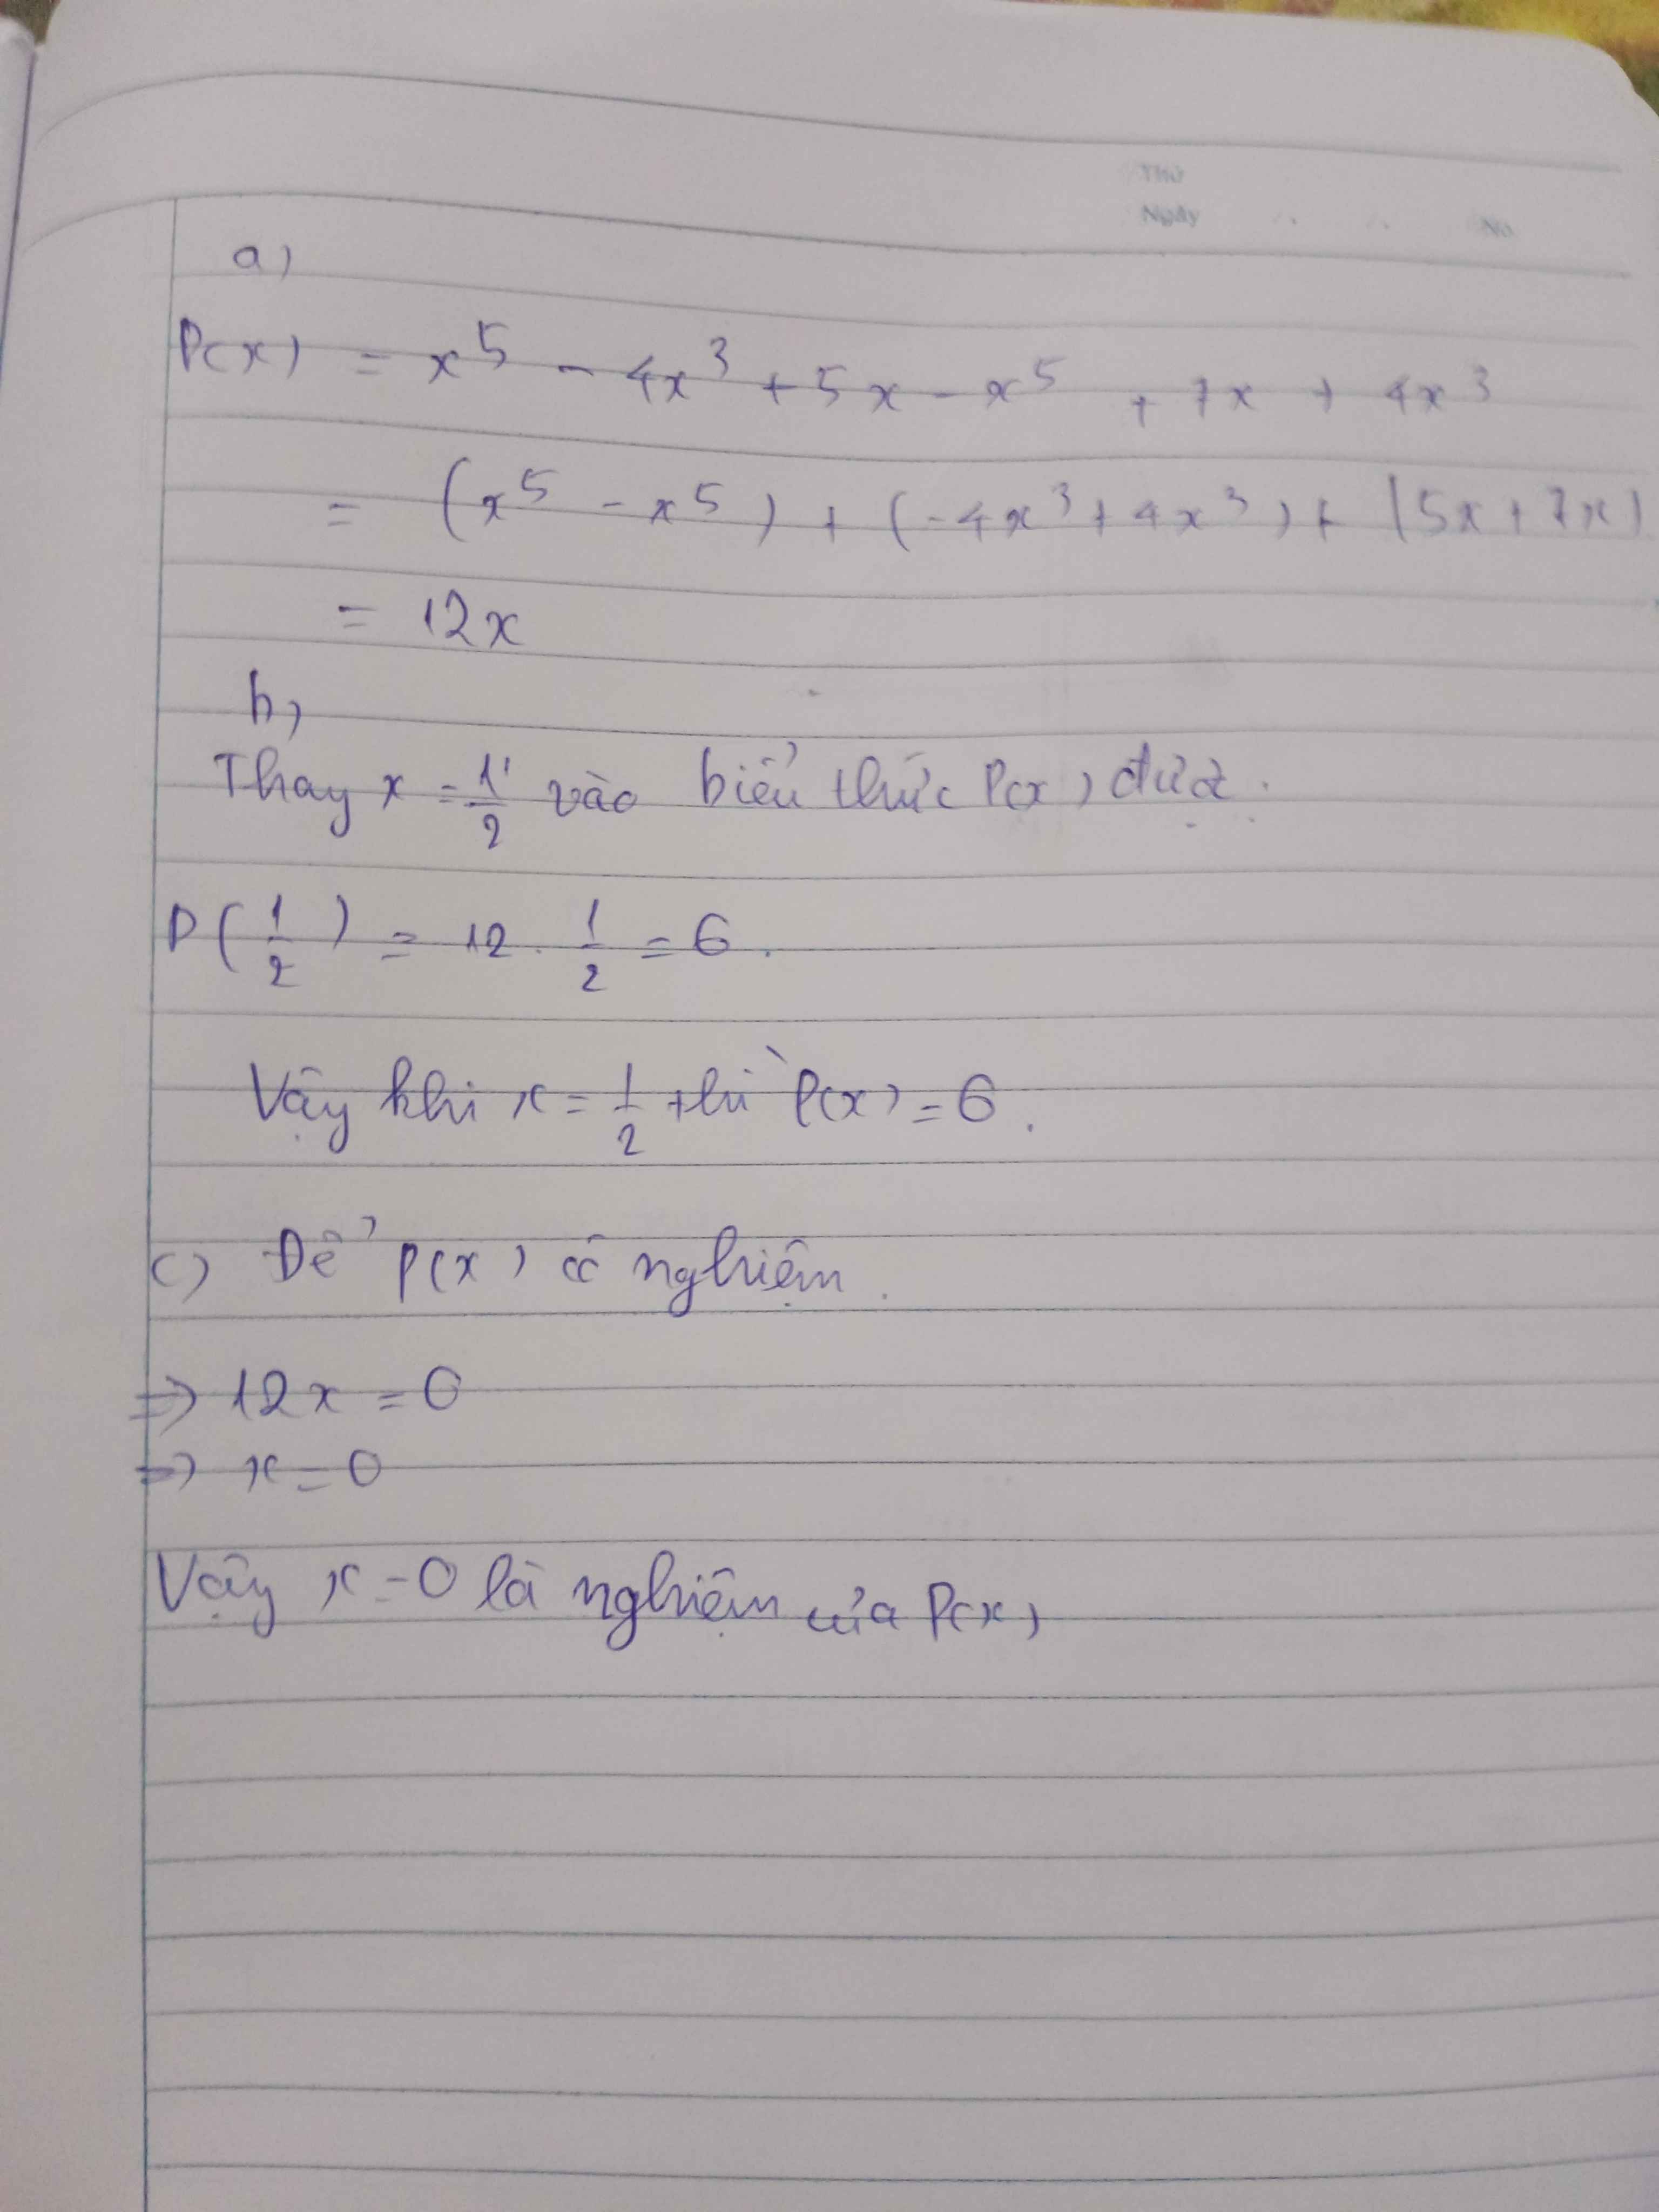 Thứ
Ngày No
a)
P(x) = x⁵ - 4x³ + 5x - x⁵ + 7x + 4x³
= (x⁵ - x⁵) + (-4x³ + 4x³) + (5x + 7x)
= 12x
b,
Thay x = 1/2 vào biểu thức P(x) được.
P(1/2) = 12 . 1/2 = 6.
Vậy khi x = 1/2 thì P(x) = 6.
c) Để P(x) có nghiệm.
⇒ 12x = 0
⇒ x = 0
Vậy x = 0 là nghiệm của P(x)